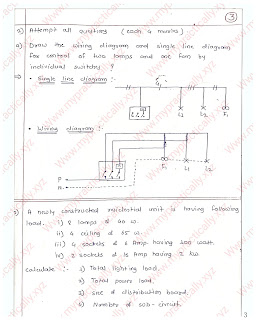 3
2) Attempt all questions (each 4 marks)
a) Draw the wiring diagram and single line diagram
for control of two lamps and one fan by
individual switches ?
⇒ • Single line diagram :-
L1 L2 F1
• Wiring diagram :-
P
N
F1 L1 L2
b) A newly constructed residential unit is having following
load. i) 8 lamps of 40 w.
ii) 4 ceiling of 65 w.
iii) 4 sockets of 5 Amp having 100 watt.
iv) 2 sockets of 15 Amp having 2 kw
calculate :- 1) Total lighting load.
2) Total power load
3) size of distribution board
4) Number of sub-circuit.
3